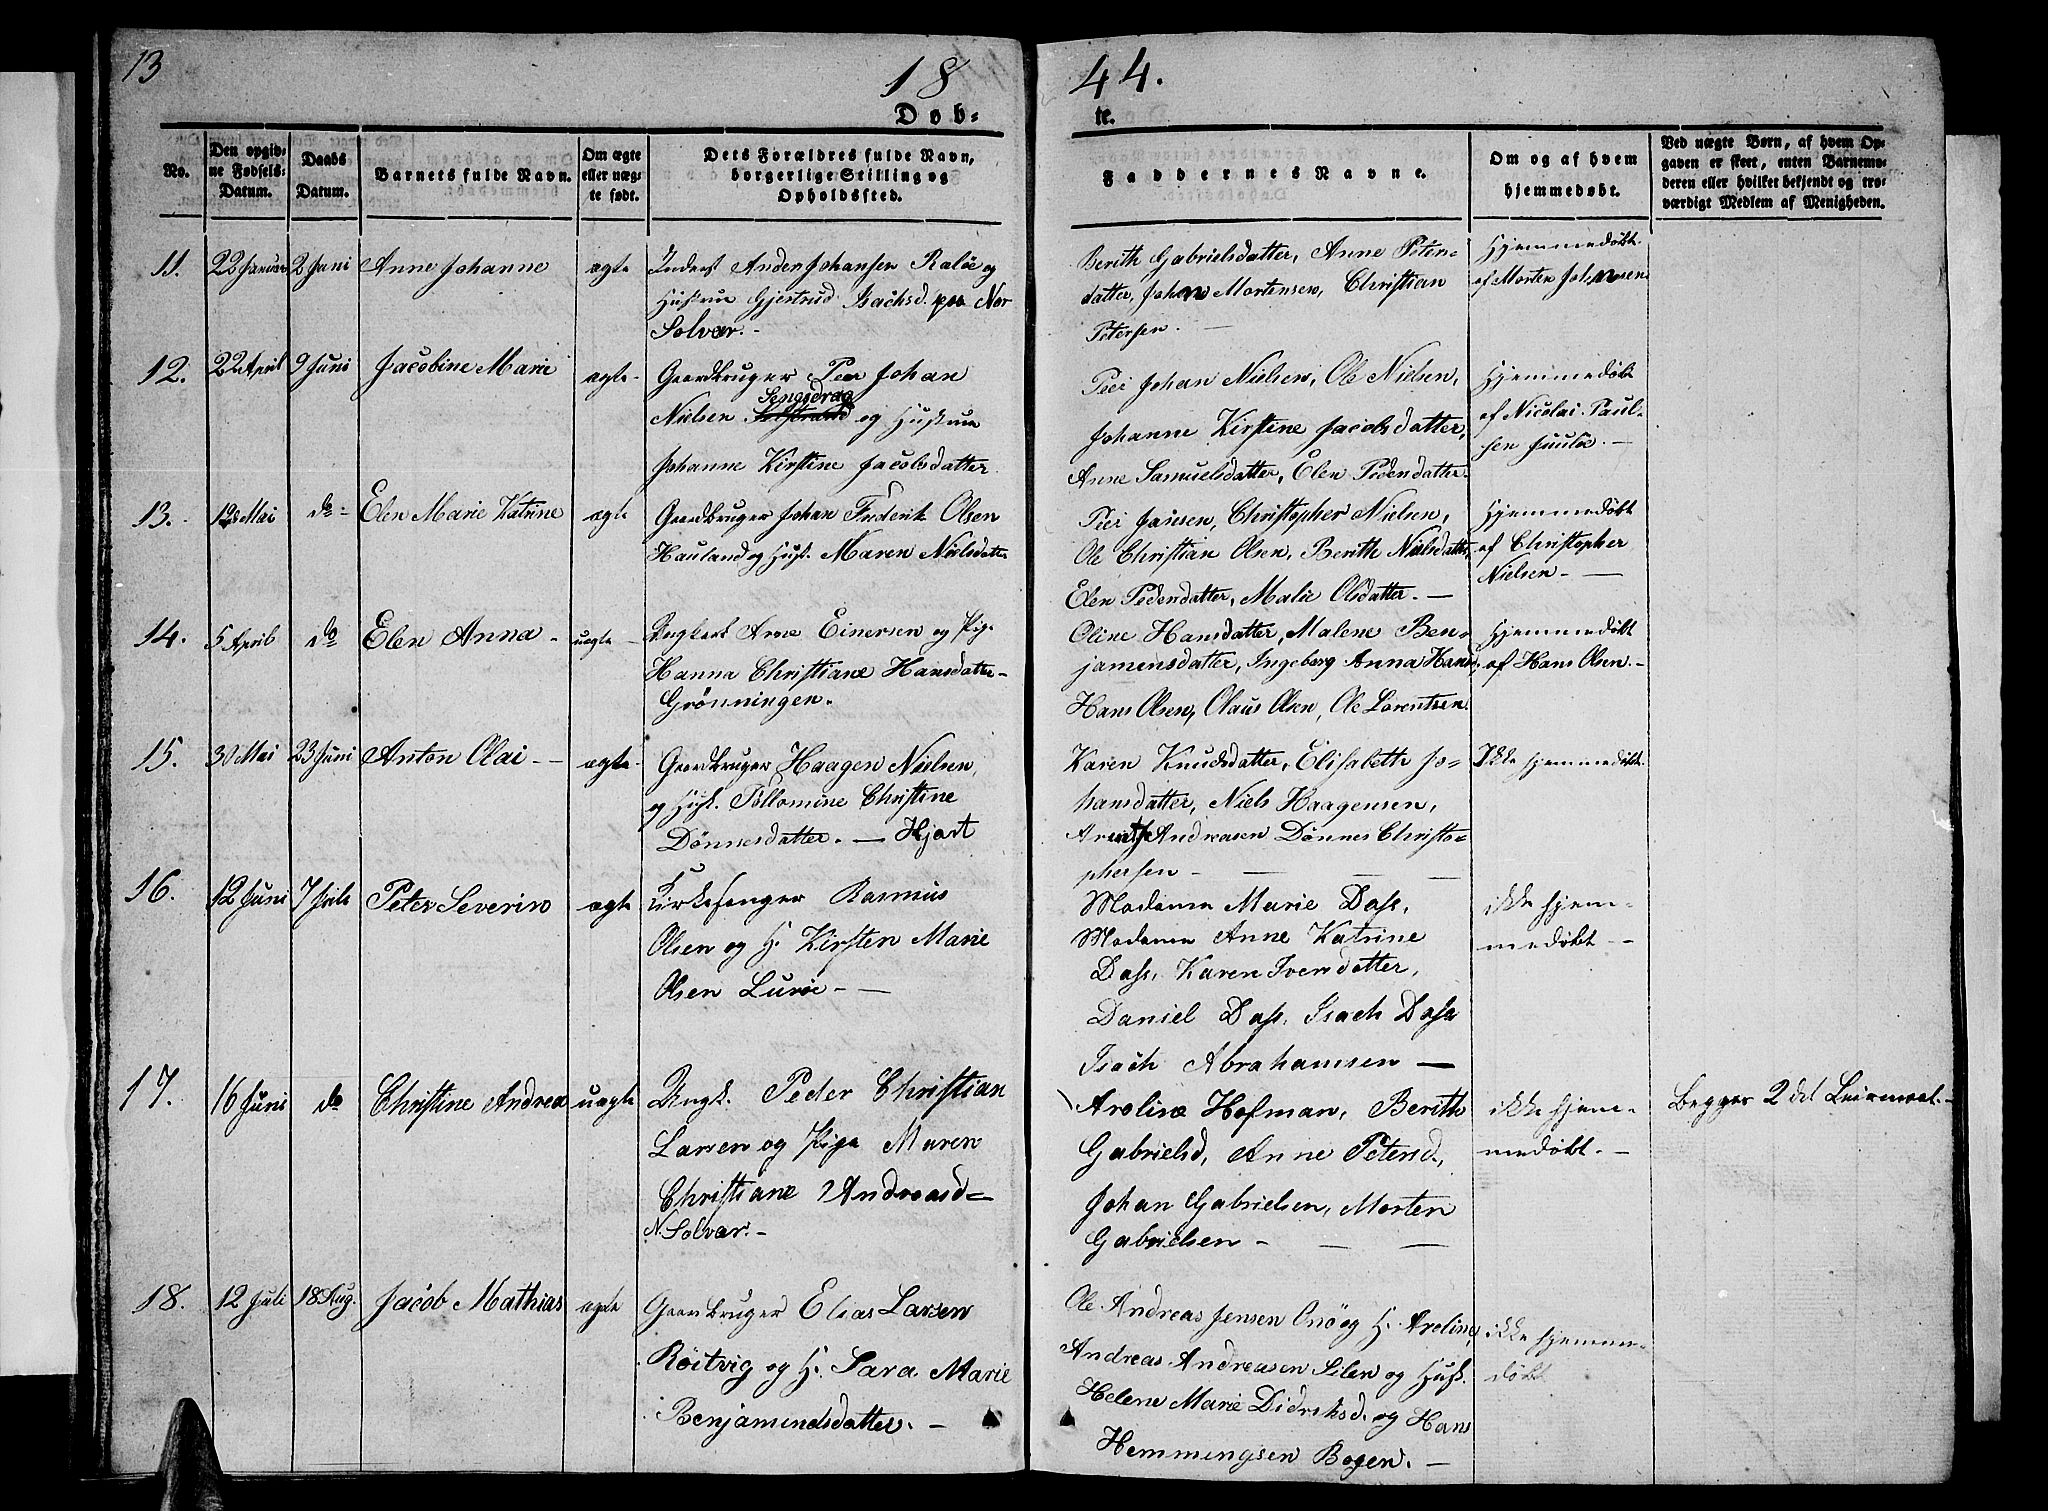 13
18 44.
Døb- te.
No.
Den opgiv-
ne Fødsels-
Datum.
Daabs
Datum.
Barnets fulde Navn.
Om ægte
eller uæg-
te født.
Dets Forældres fulde Navn,
borgerlige Stilling og
Opholdssted.
Faddernes Navne.
Om og af hvem
hjemmedøbt.
Ved uægte Børn, af hvem Op-
gaven er skeet, enten Barnemo-
deren eller hvilket bekjendt og tro-
værdigt Medlem af Menigheden.
11. 22 Januar 2 Juni Anne Johanne ægte
Inderst Anders Johansen Raløe og
Hustrue Gjertrud Isachsd. paa Nor
Solvær.-
Berith Gabrielsdatter, Anne Peters-
datter, Johan Mortensen, Christian
Petersen. -
Hjemmedøbt
af Morten Johansen
12. 22 April 9 Juni Jacobine Marie ægte-
Gaardbruger Peer Johan
Sengsdrag
Nielsen og Hustrue
Johanne Kirstine Jacobsdatter
Peer Johan Nielsen, Ole Nielsen,
Johanne Kirstine Jacobsdatter,
Anne Samuelsdatter, Elen Pedersdatter.
Hjemmedøbt
af Nicolai Paul-
sen
13. 12 Mai do Elen Marie Katrine ægte
Gaardbruger Johan Frederik Olsen
Hauland og Hust. Maren Nielsdatter
Peer Jansen, Christopher Nielsen,
Ole Christian Olsen, Berith Nielsdatter,
Elen Pedersdatter, Malie Olsdatter. -
Hjemmedøbt
af Christopher
Nielsen -
14. 5 April do Elen Anna - uægte -
Ungkarl Arne Einersen og Pige
Hanna Christiane Hansdatter-
Grönningen.
Oline Hansdatter, Malene Ben-
jamensdatter, Ingeborg Anna Hansd,
Hans Olsen, Olaus Olsen, Ole Lorentsen
Hjemmedøbt
af Hans Olsen.-
15. 30 Mai 23 Juni Anton Olai - ægte-
Gaardbruger Haagen Nielsen,
og Hust. Tollomine Christine
Dønnesdatter. - Hjart
Karen Knudsdatter, Elisabeth Jo-
hansdatter, Niels Haagensen,
Arnt Andreasen Dønnes Christo-
phersen -
Ikke hjemmedøbt.
16. 12 Juni 7 Jule Peter Severin ægte
Kirkesanger Rasmus
Olsen og H. Kirsten Marie
Olsen Lurøe -
Madame Marie Dass,
Madame Anne Katrine
Dass, Karen Iversdatter,
Daniel Dass, Isach Dass
Isach Abrahamsen -
ikke hjem-
medøbt -
17. 16 Juni do Christine Andrea uægte
Ungk. Peder Christian
Larsen og Pige Maren
Christiane Andreasd-
N. Solvær.-
Aroline Hofman, Berith
Gabrielsd, Anne Petersd,
Johan Gabrielsen, Morten
Gabrielsen -
ikke hjem-
medøbt. -
Begges 2 det Leiermaal.-
18. 12 Juli 18 Aug. Jacob Mathias ægte
Gaardbruger Elias Larsen
Röitvig og H. Sara Marie
Benjamindsdatter. -
Ole Andreas Jensen Onö og H. Areline,
Andreas Andreasen Silen og Hust.
Helene Marie Didriksd. og Hans
Hemmingsen Bogen. -
ikke hjemme-
døbt